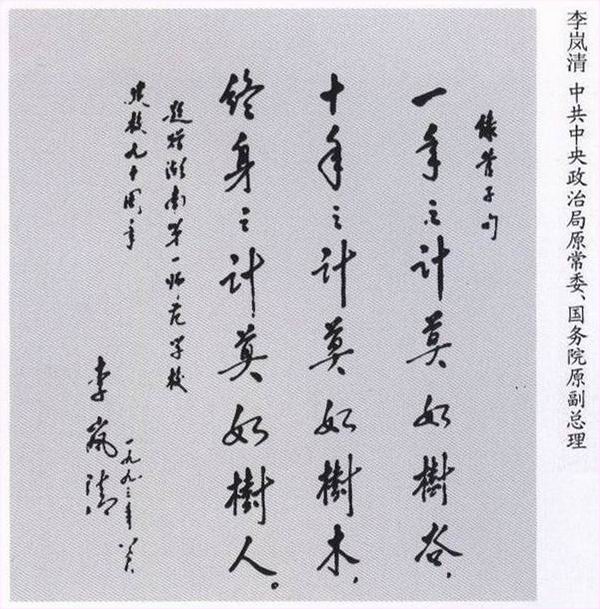 李岚清 中共中央政治局原常委、国务院原副总理
録管子句
一年之计莫如樹谷，
十年之计莫如樹木，
终身之计莫如樹人。
题赠湖南第一师范学校
建校九十周年
李岚清
一九九三年